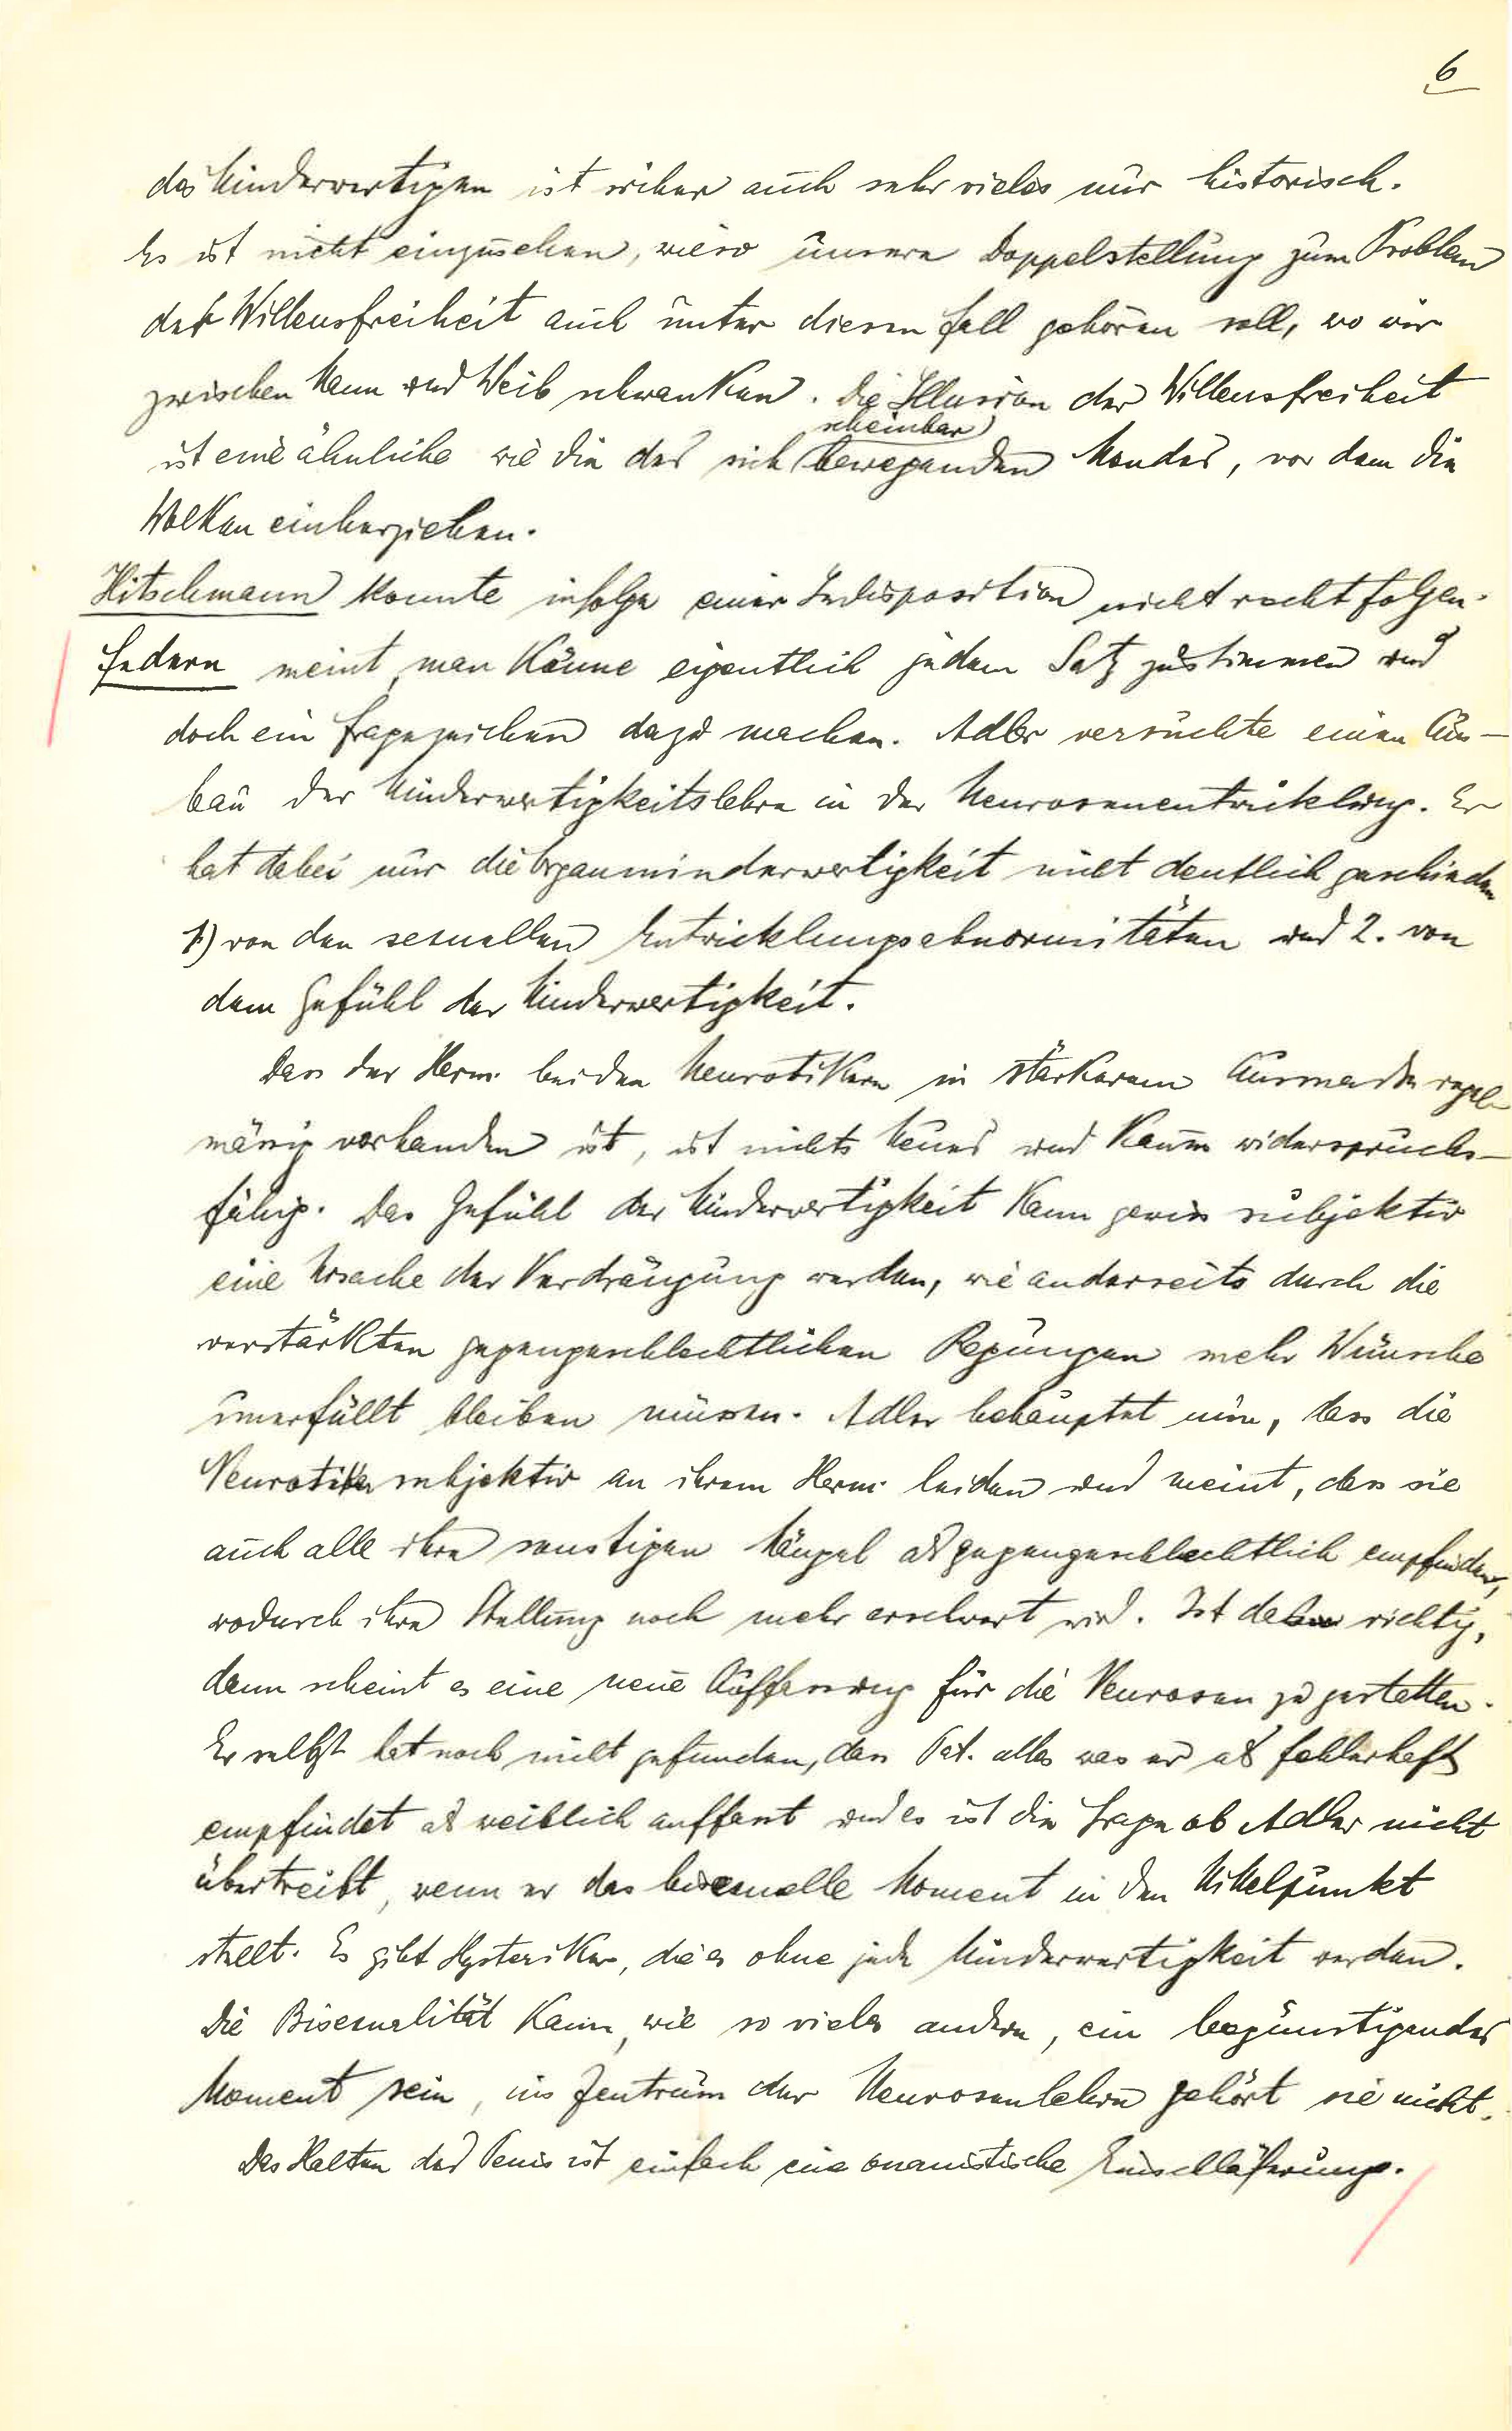 6
des Minderwertigen ist sicher auch sehr vieles nur historisch.
Es ist nicht einzusehen, wieso unsere Doppelstellung zum Problem
der Willensfreiheit auch unter diesen Fall gehören soll, wo wir
zwischen Mann und Weib schwanken. Die Illusion der Willensfreiheit
scheinbar
ist eine ähnliche wie die des sich bewegenden Mondes, vor dem die
Wolken einherziehen.
Hitschmann konnte infolge einer Indisposition nicht recht folgen.
Federn meint, man könne eigentlich jedem Satz zustimmen und
doch ein Fragezeichen dazu machen. Adler versuchte einen Aus-
bau der Minderwertigkeitslehre in der Neurosenentwicklung. Er
hat dabei nur die Organminderwertigkeit nicht deutlich geschieden
1.) von den sexuellen Entwicklungsabnormitäten und 2. von
dem Gefühl der Minderwertigkeit.
Dass der Herm. bei den Neurotikern in stärkerem Ausmaße regel-
mässig vorhanden ist, ist nichts Neues und kaum widerspruchs-
fähig. Das Gefühl der Minderwertigkeit kann gewiss subjektiv
eine Ursache der Verdrängung werden, wie anderseits durch die
verstärkten gegengeschlechtlichen Regungen mehr Wünsche
unerfüllt bleiben müssen. Adler behauptet nun, dass die
Neurotiker subjektiv an ihrem Herm. leiden und meint, dass sie
auch alle ihre sonstigen Mängel als gegengeschlechtlich empfinden,
wodurch ihre Stellung noch mehr erschwert wird. Ist das richtig,
dann scheint es eine neue Auffassung für die Neurosen zu gestatten.
Er selbst hat noch nicht gefunden, dass Pat. alles was er als fehlerhaft
empfindet als weiblich auffasst und es ist die Frage ob Adler nicht
übertreibt, wenn er das bisexuelle Moment in den Mittelpunkt
stellt. Es gibt Hysteriker, die es ohne jede Minderwertigkeit werden.
Die Bisexualität kann, wie so vieles andere, ein begünstigendes
Moment sein, ins Zentrum der Neurosenlehre gehört sie nicht.
Das Halten des Penis ist einfach eine onanistische Einschläferung.